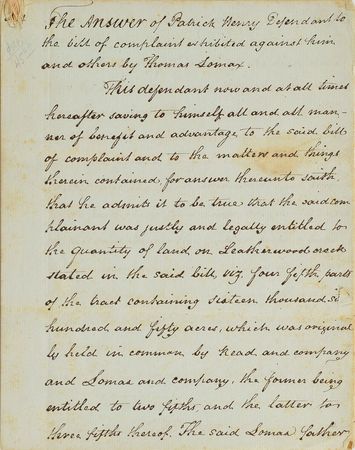 The Answer of Patrick Henry Defendant to
the bill of complaint exhibited against him
and others by Thomas Lomax.
This defendant now and at all times
hereafter saving to himself all and all man-
ner of benefit and advantage to the said bill
of complaint and to the matters and things
therein contained, for answer thereunto saith,
that he admits it to be true that the said com
plainant was justly and legally entitled to
the quantity of land on Leatherwood creek
stated in the said bill, viz. four fifth parts
of the tract containing sixteen thousand si
hundred and fifty acres, which was original
ly held in common by Read and company
and Lomax and company, the former being
entitled to two fifths, and the latter to
three fifths thereof. The said Lomax father